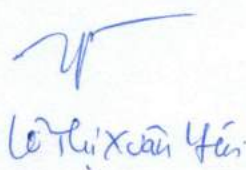 Lê Thị Xuân Yến